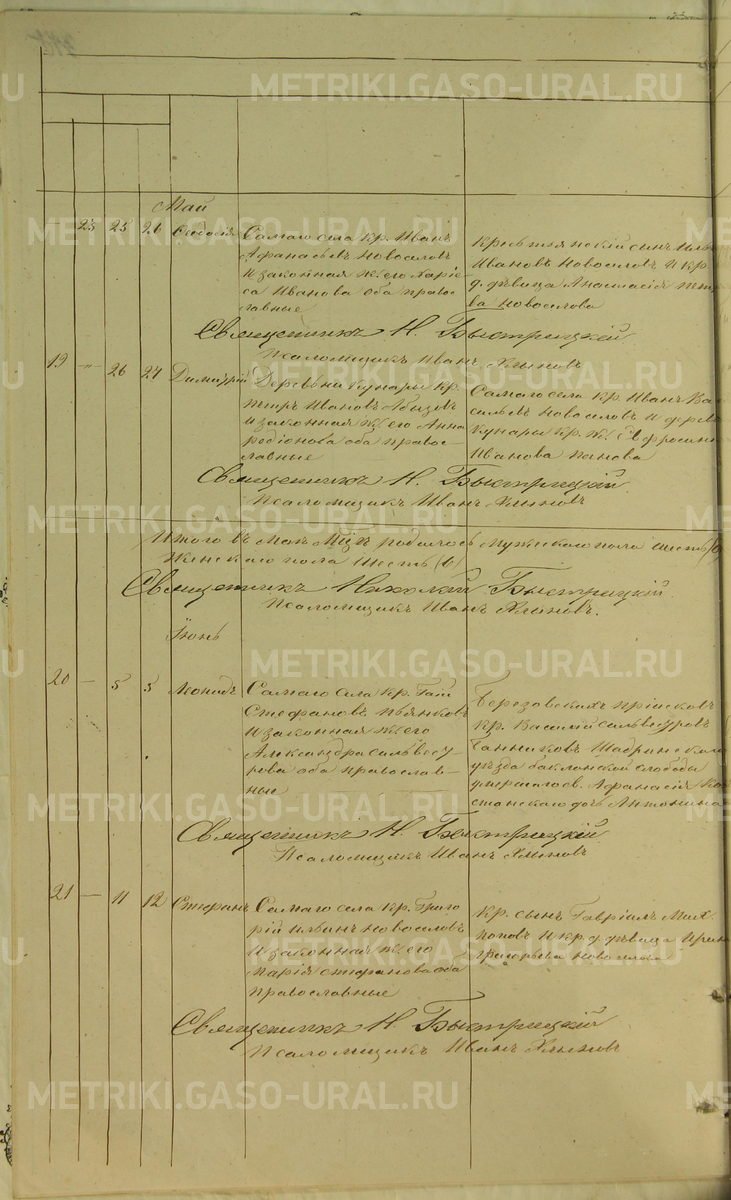 METRIKI.GASO-URAL.RU
Май
25 25 26 Феодосія Самаго села кр. Иванъ
Афанасьевъ Новоселовъ
и законная ж. его Лари-
са Иванова оба правос-
лавные
Крестьянской сынъ
Ивановъ Новоселовъ и кр.
д. дѣвица Анастасія Пет-
ва Новоселова
Священникъ Н. Быстрицкій
Псаломщикъ Иванъ
19 — 26 27 Димитрій Деревни Кунары кр.
Петръ Ивановъ
и законная ж. его Анна
Родіонова оба правос-
лавные
Самаго села кр. Иванъ Ва
сильевъ Новоселовъ и дерев
Кунары кр. ж. Евфросин
Иванова Панова
Священникъ Н. Быстрицкій
Псаломщикъ Иванъ
Итого въ Маѣ Мцѣ родилось мужескаго пола шесть (6)
Женскаго пола шесть (6)
Священникъ Николай Быстрицкій.
Псаломщикъ Иванъ
Іюнь
20 — 5 5 Леонидъ Самаго села кр. Гай
Стефановъ Пьянковъ
и законная ж. его
Александра Сильвес
рова оба православ-
ные
Березовскихъ пріисковъ
кр. Василій Сильвестровъ
Банниковъ Шадринскаго
уѣзда Бакланской слободы
Афанасія Кон
станскаго дочь Антонина
Священникъ Н. Быстрицкій
Псаломщикъ Иванъ
21 — 11 12 Стефанъ Самаго села кр. Григо
рій Ильинъ Новоселовъ
и законная ж. его
Марія Стефанова оба
Православные
Кр. сынъ Гавріилъ Мих
Поповъ и кр. д. дѣвица Ирин
Григорьева Новоселова
Священникъ Н. Быстрицкій
Псаломщикъ Иванъ